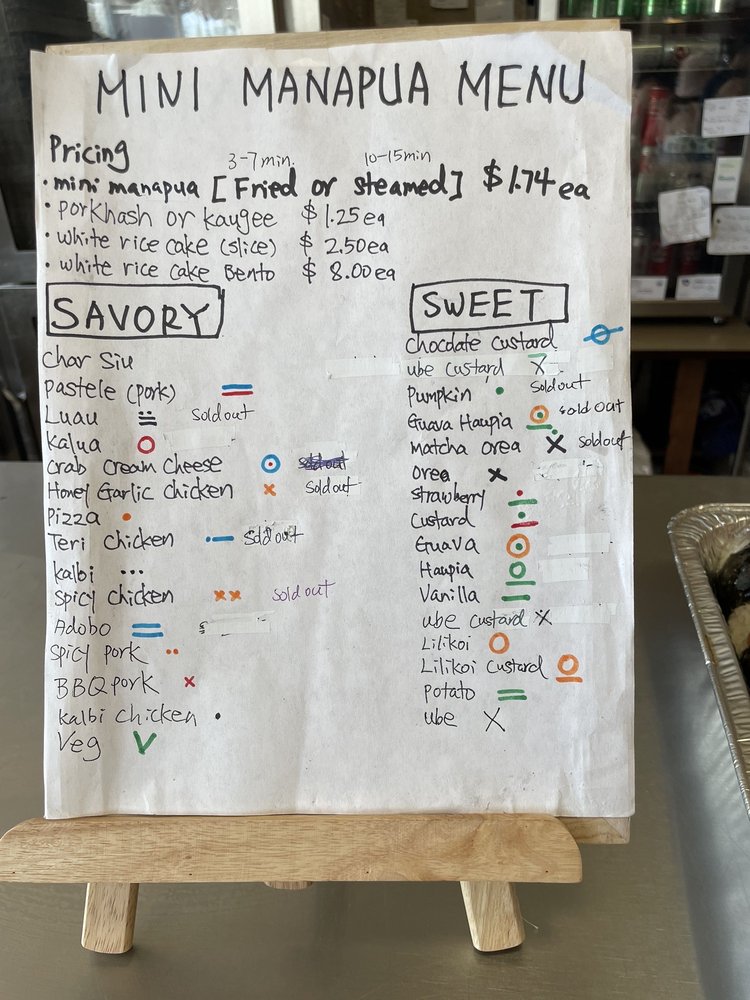 MINI MANAPUA MENU
Pricing
3-7 min. 10-15min
• mini manapua [Fried or steamed] $1.74 ea
• porkhash or kaugee $1.25ea
• white rice cake (slice) $ 2.50ea
• white rice cake Bento $ 8.00ea
SAVORY
Char Siu
Pastele (pork)
Luau Sold out
Kalua
Crab Cream Cheese sold out
Honey Garlic chicken Sold out
Pizza
Teri chicken Sold out
kalbi
Spicy chicken Sold out
Adobo
Spicy pork
BBQ pork
kalbi chicken
Veg
SWEET
Chocdate custard
ube custard
Pumpkin Sold out
Guava Haupia sold out
Matcha orea sold out
orea
strawberry
Custard
Guava
Haupia
Vanilla
ube custard
Lilikoi
Lilikoi custard
potato
ube